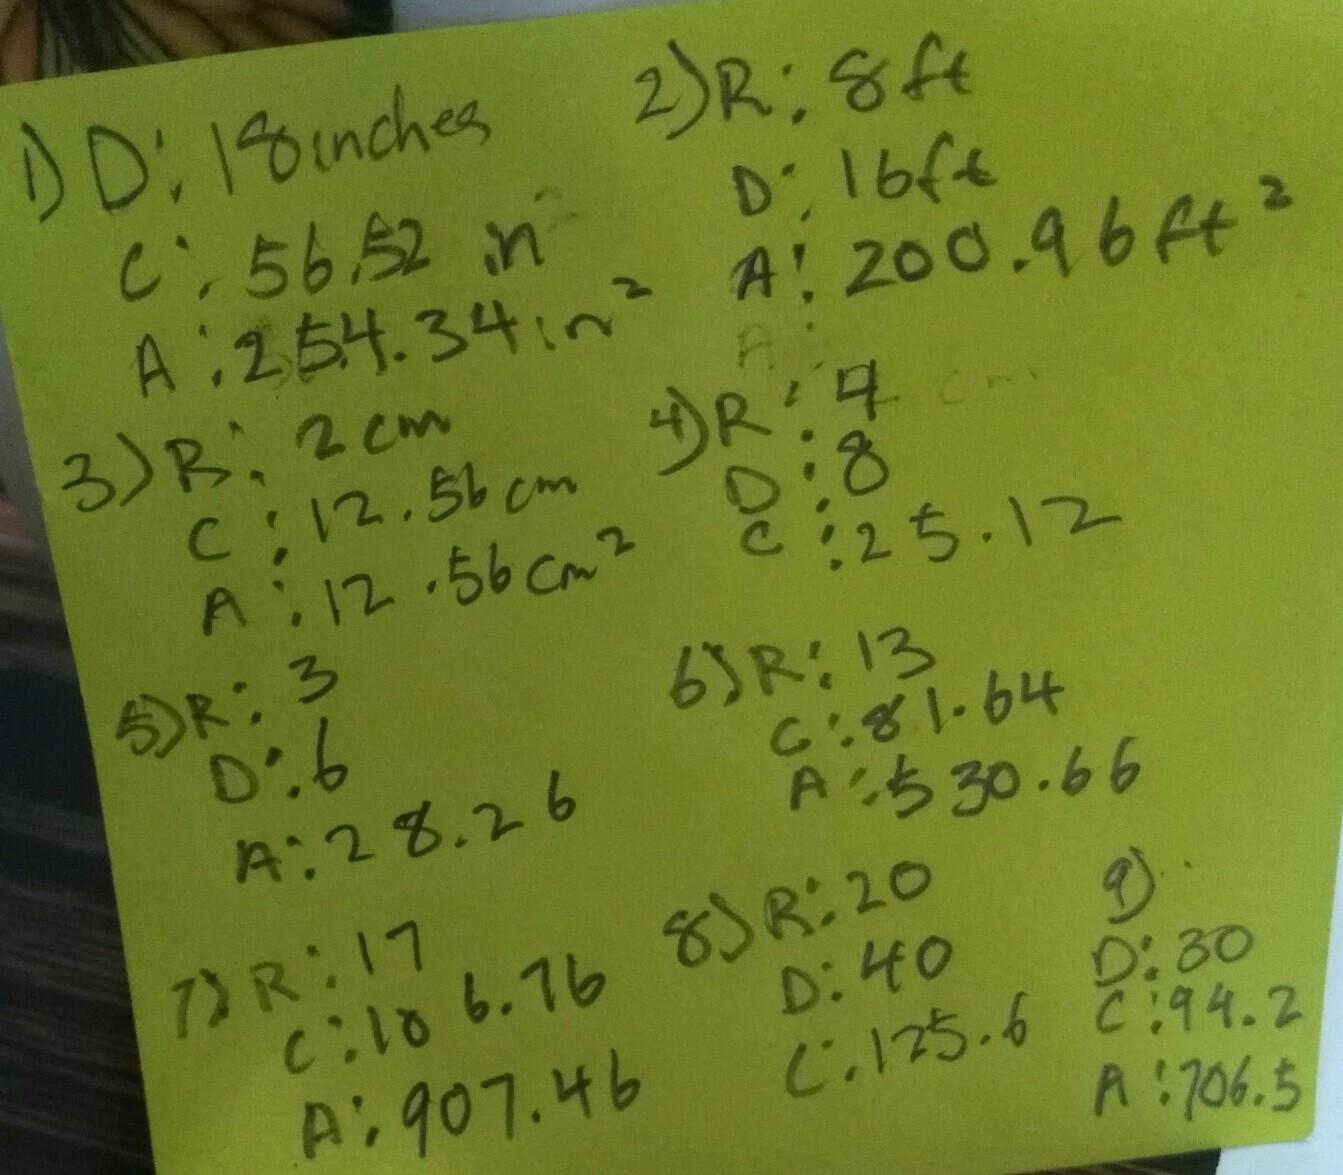 1) D: 18 inches
C: 56.52 in
A: 254.34 in²
2) R: 8 ft
D: 16 ft
A: 200.96 ft²
A:
3) R: 2 cm
C: 12.56 cm
A: 12.56 cm²
4) R: 4 cm
D: 8
C: 25.12
5) R: 3
D: 6
A: 28.26
6) R: 13
C: 81.64
A: 530.66
7) R: 17
C: 106.76
A: 907.46
8) R: 20
D: 40
C: 125.6
9)
D: 30
C: 94.2
A: 706.5